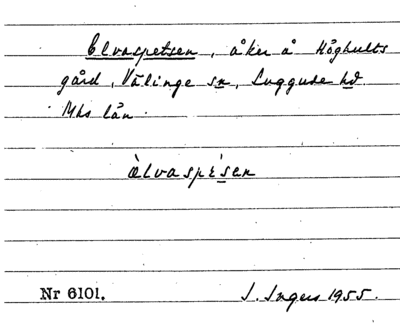 Elvaspetsen, åker å Höghults
gård, Välinge sn, Luggude hd.
Mhs län.
èlvaspέ̀sen
Nr 6101. I. Ingers 1955.